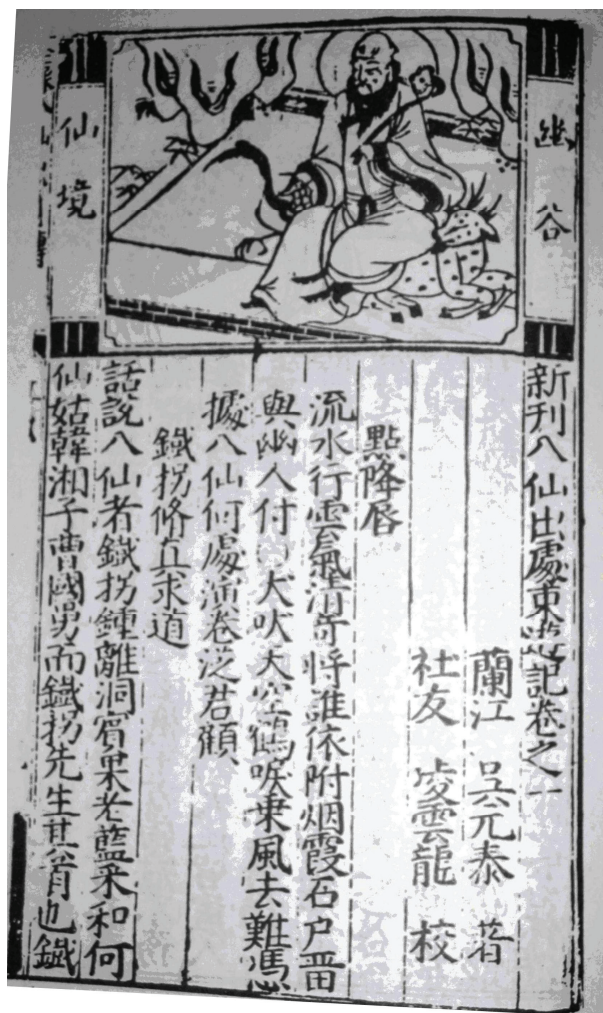 幽谷
仙境
新刊八仙出處東遊記卷之一
蘭江 吳元泰 著
社友 凌雲龍 校
點降唇
流水行雲氣堅清奇將誰依附烟霞石户畱
與幽人付 犬吠天空鶴唳乘風去難憑
據八仙何處演卷從君顧
鐵拐修真求道
話說八仙者鐵拐鍾離洞賓果老藍采和何
仙姑韓湘子曹國舅而鐵拐先生其首也鐵